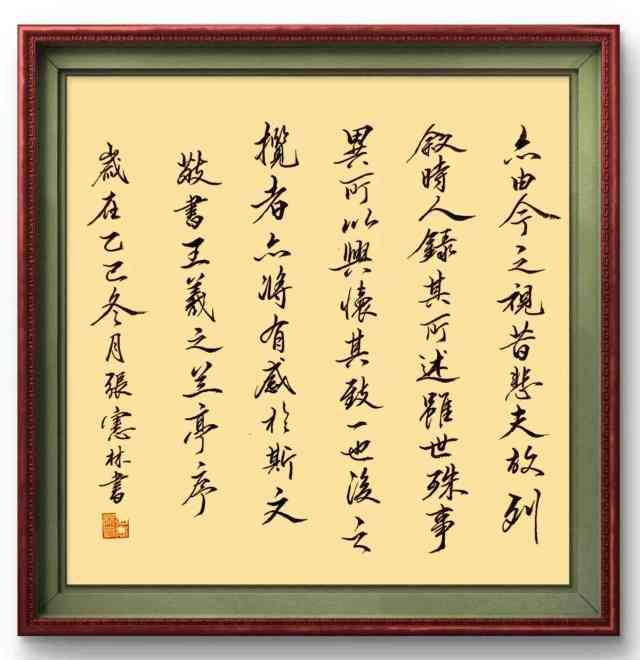 亦由今之視昔悲夫故列
敘時人錄其所述雖世殊事
異所以興懷其致一也後之
攬者亦將有感於斯文
敬書王羲之兰亭序
歲在乙巳冬月張憲林書